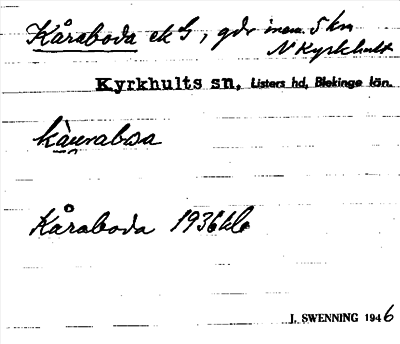 Kåraboda ek bl, gdr inom 5 km
N Kyrkhult
Kyrkhults sn, Listers hd, Blekinge län.
Kåraboda 1936 kb
J. SWENNING 1946